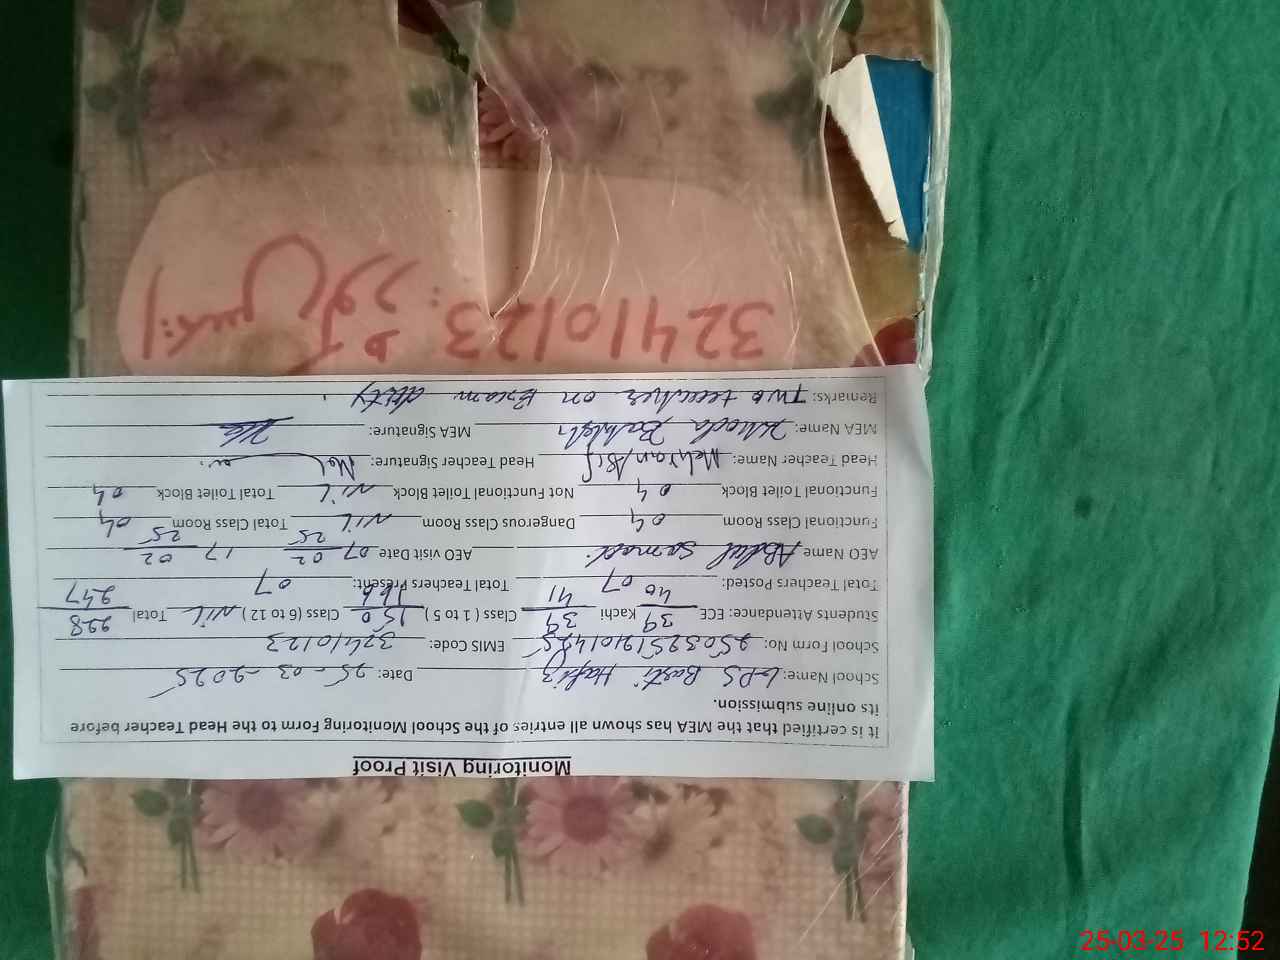 Monitoring Visit Proof
It is certified that the MEA has shown all entries of the School Monitoring Form to the Head Teacher before
its online submission.
School Name: GPS Basti Hafiz Date: 25-03-2025
School Form No: EMIS Code: 32410123
Students Attendance: ECE 39/40 Kachi 39/41 Class ( 1 to 5 ) 150/166 Class (6 to 12 ) Nil Total 228/247
Total Teachers Posted: 07 Total Teachers Present: 07
AEO Name Abdul Samad AEO visit Date 07 02 25 17 02 25
Functional Class Room 04 Dangerous Class Room Nil Total Class Room 04
Functional Toilet Block 04 Not Functional Toilet Block Nil Total Toilet Block 04
Head Teacher Name: Mehran Asif Head Teacher Signature:
MEA Name: Khuda Bakhsh MEA Signature:
Remarks: Two teacher on Exam duty.
32410123
25-03-25 12:52